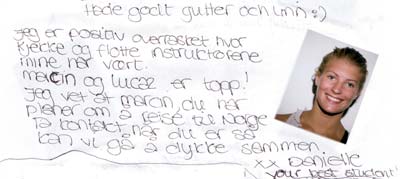 Hade godt gutter och Linn :)
Jeg er positiv overrasket hvor
kjekke og flotte instructorene
mine har vært.
marcin og lucaz er topp!
Jeg vet at marcin du har
planer om å reise til Norge
Ta kontakt når du er så
kan vi gå å dykke sammen
xx Danielle
your best student!